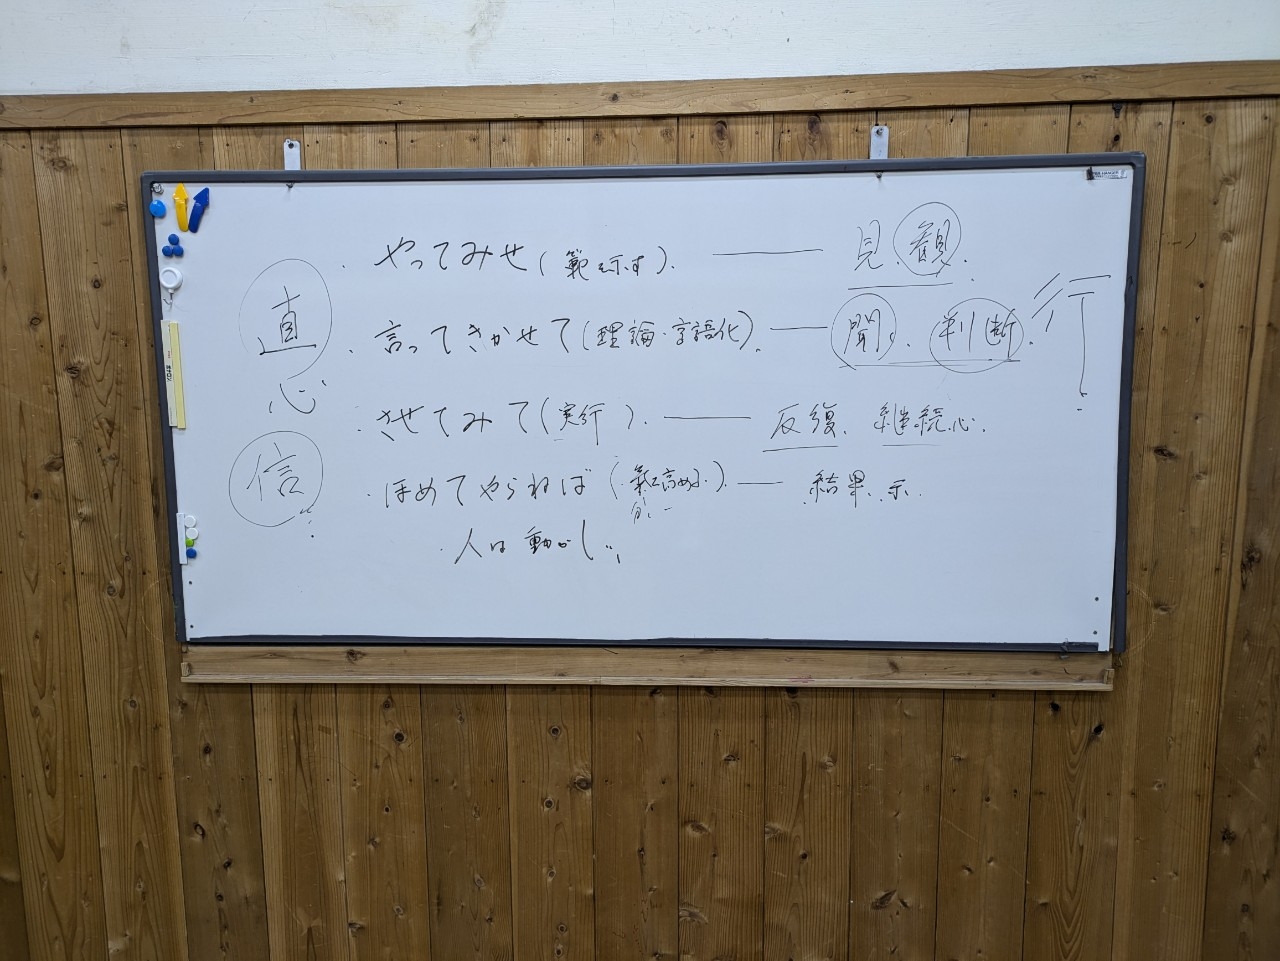 直心
信
・やってみせ(範を示す)。 ―― 見、観。
・言ってきかせて(理論・言語化)。 ― 聞、判断。
行
・させてみて(実行)。 ―― 反復、継続心。
・ほめてやらねば(氣を高める)。 ― 結果、示。
・人は動かじ